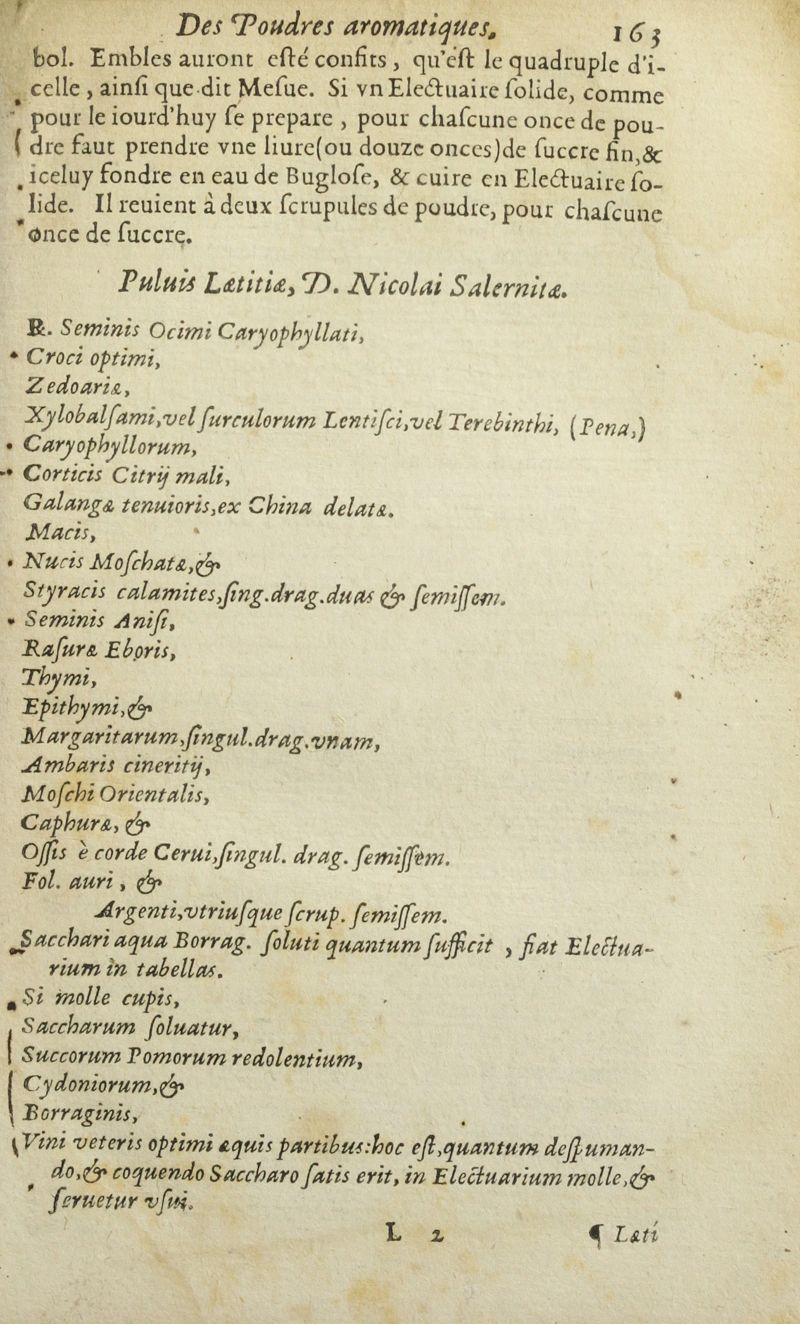 Des Poudres aromatiques. 163
bol. Embles auront eſté confits, qu'eſt le quadruple d'i-
celle, ainſi que dit Meſue. Si vn Electuaire ſolide, comme
pour le iourd'huy ſe prepare, pour chaſcune once de pou-
dre faut prendre vne liure (ou douze onces) de ſuccre fin, &
iceluy fondre en eau de Bugloſe, & cuire en Electuaire ſo-
lide. Il reuient à deux ſcrupules de poudre, pour chaſcune
once de ſuccre.
Puluis Lætitiæ, D. Nicolai Salernitæ.
℞. Seminis Ocimi Caryophyllati,
Croci optimi,
Zedoariæ,
Xylobalſami, vel ſurculorum Lentiſci, vel Terebinthi, (Pena,)
Caryophyllorum,
Corticis Citrij mali,
Galangæ tenuioris, ex China delatæ.
Macis,
Nucis Moſchatæ, &
Styracis calamites, ſing. drag. duas & ſemiſſem.
Seminis Aniſi,
Raſuræ Eboris,
Thymi,
Epithymi, &
Margaritarum, ſingul. drag. vnam,
Ambaris cineritij,
Moſchi Orientalis,
Caphuræ, &
Oſſis è corde Cerui, ſingul. drag. ſemiſſem.
Fol. auri, &
Argenti, vtriuſque ſcrup. ſemiſſem.
Sacchari aqua Borrag. ſoluti quantum ſufficit, fiat Electua-
rium in tabellas.
Si molle cupis,
Saccharum ſoluatur,
Succorum Pomorum redolentium,
Cydoniorum, &
Borraginis,
Vini veteris optimi æquis partibus: hoc eſt, quantum deſpuman-
do, & coquendo Saccharo ſatis erit, in Electuarium molle, &
ſeruetur vſui.
L 2 ¶ Læti